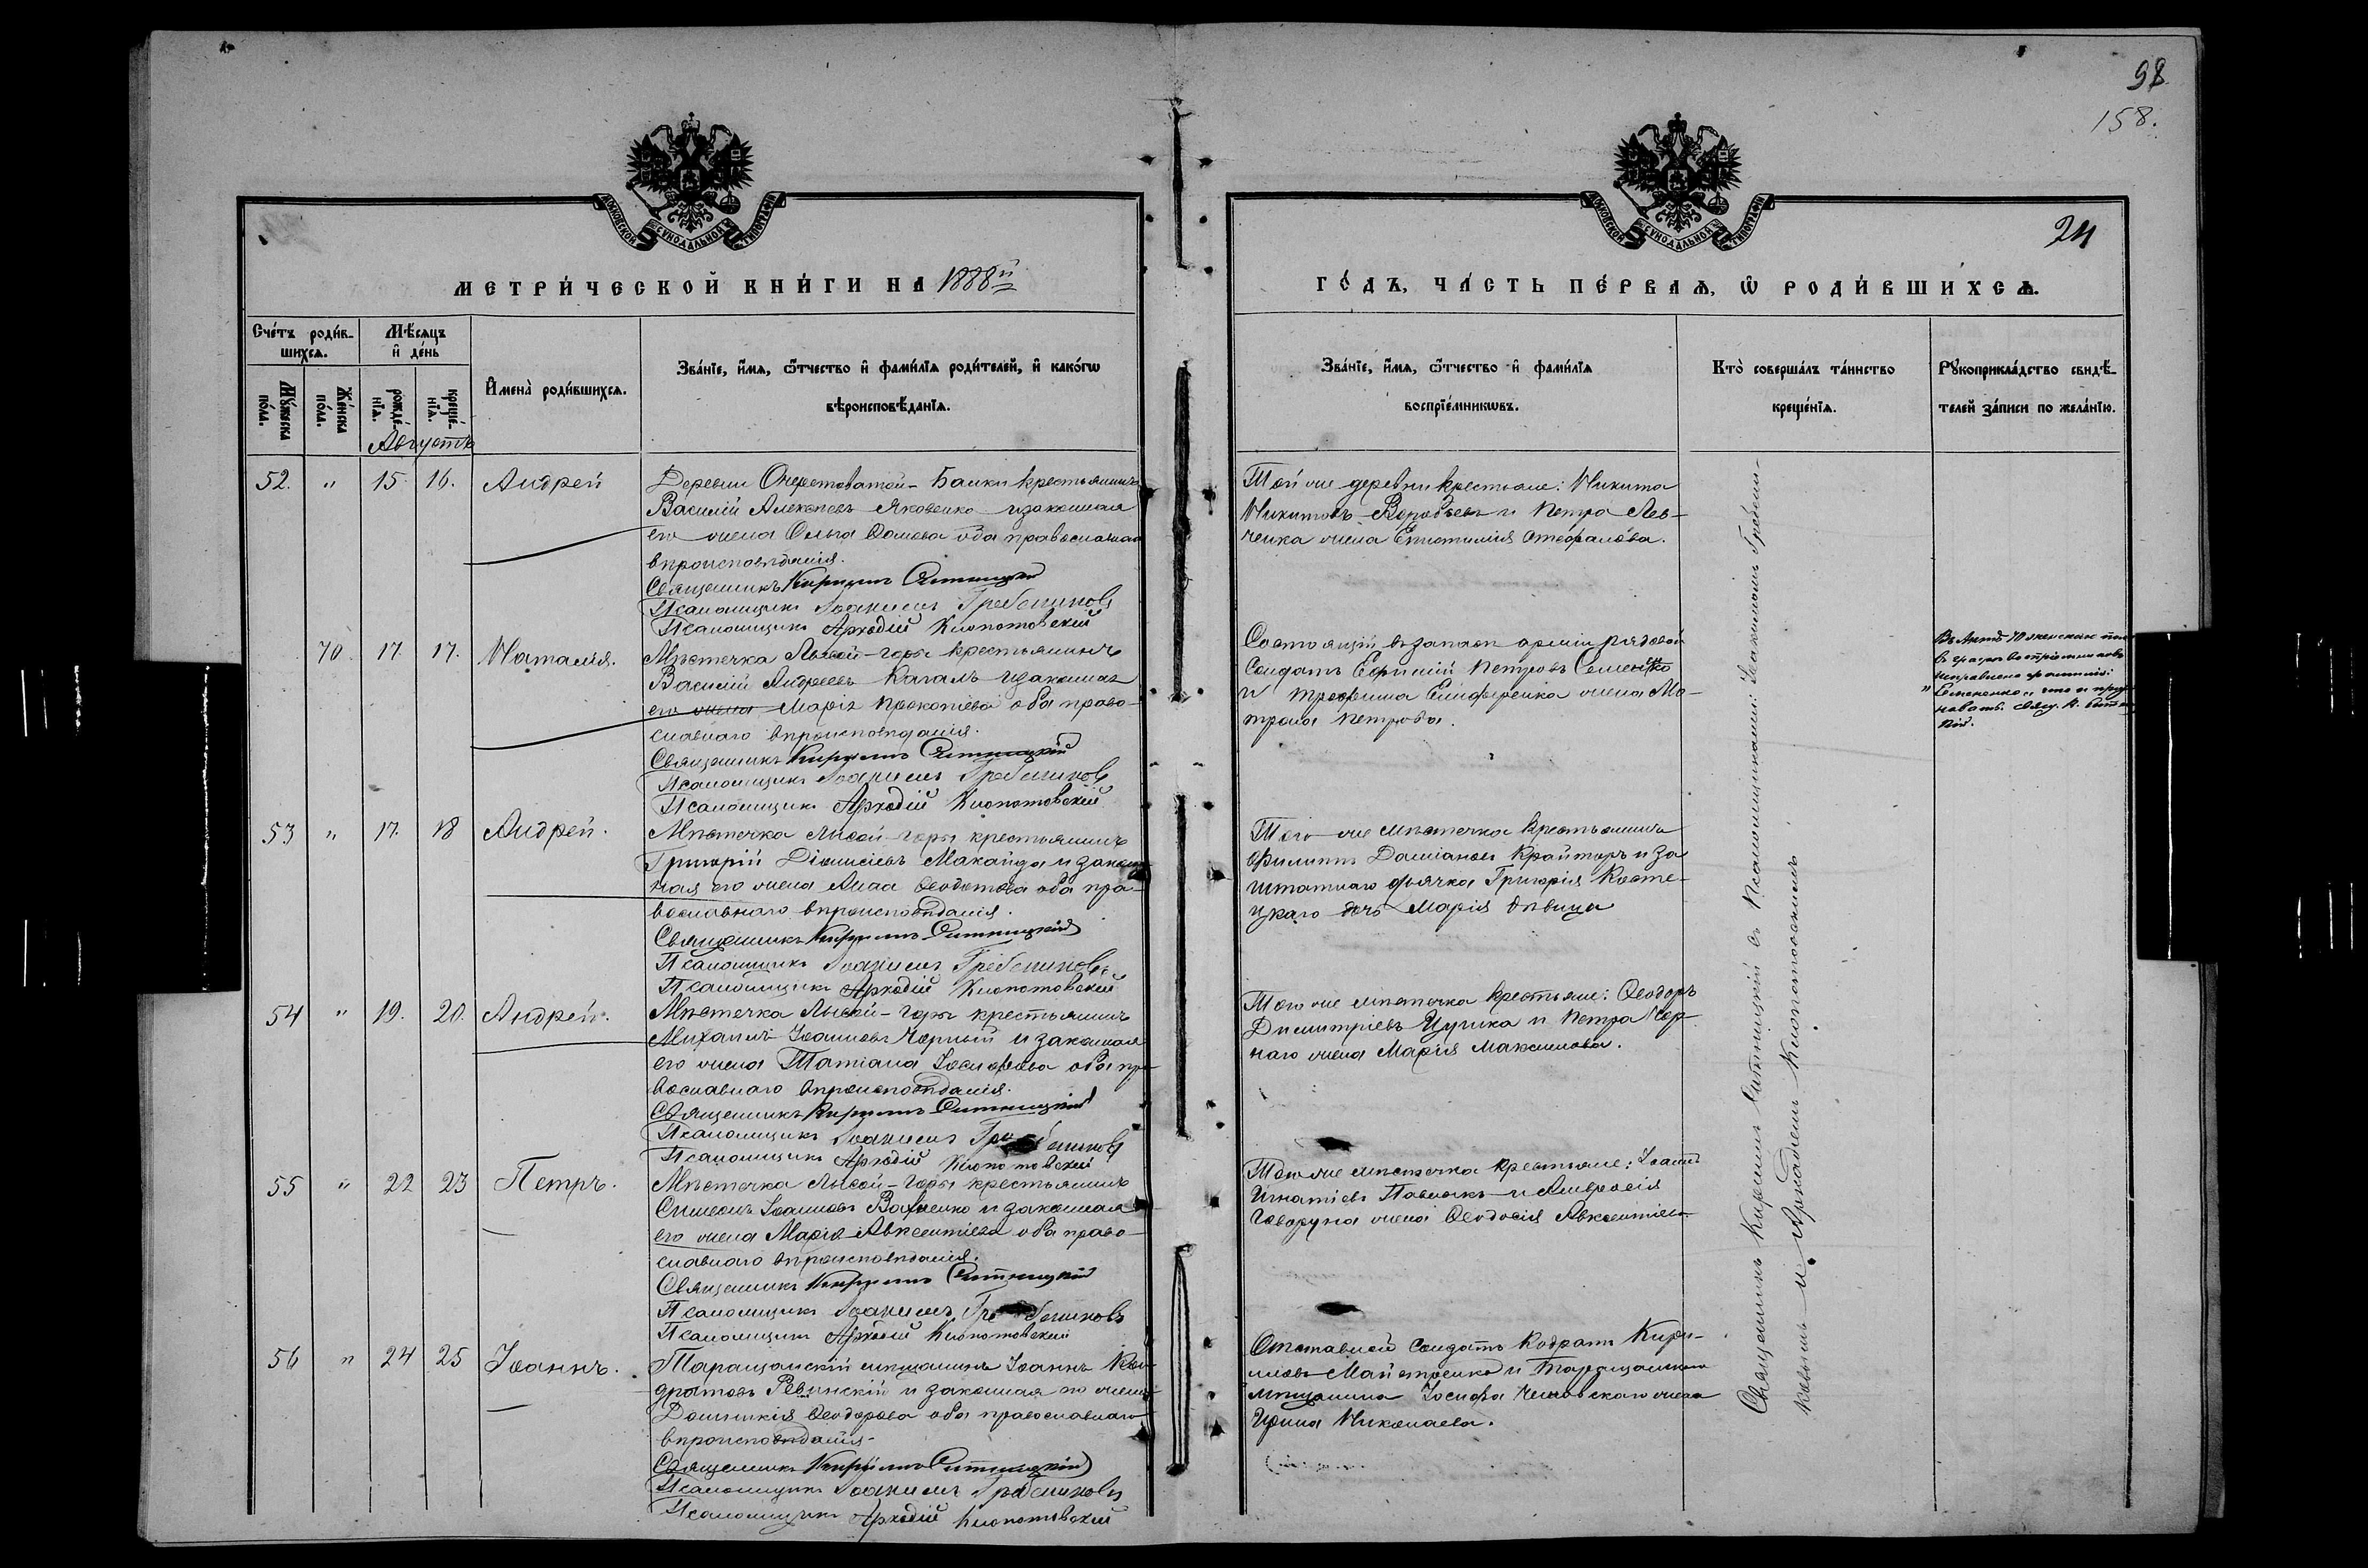 98
158.
МОСКОВСКОЙ СѴНОДАЛЬНОЙ ТИПОГРАФІИ
МОСКОВСКОЙ СѴНОДАЛЬНОЙ ТИПОГРАФІИ
24
МЕТРИ́ЧЕСКОЙ КНИ́ГИ НА 1888й
ГО́ДЪ, ЧА́СТЬ ПЕ́РВАѦ, Ѡ РОДИ́ВШИХСѦ.
Сче́тъ роди́в-
шихсѧ.
Мꙋ́жеска
по́ла.
Же́нска
по́ла.
Мѣ́сѧцъ
и҆ де́нь
рожде́-
нїѧ.
креще́-
нїѧ.
И҆мена̀ роди́вшихсѧ.
Зва́нїе, и҆́мѧ, ѻ҆́тчество и҆ фами́лїѧ роди́телей, и҆ како́гѡ
вѣроисповѣ́данїѧ.
Зва́нїе, и҆́мѧ, ѻ҆́тчество и҆ фами́лїѧ
воспрїе́мникѡвъ.
Кто̀ соверша́лъ та́инство
креще́нїѧ.
Рꙋкоприкла́дство свидѣ́-
телей за́писи по жела́нїю.
Августъ
52. " 15. 16. Андрей
Деревни Очеретоватой-Балки крестьянинъ
Василій Алексѣевъ Яковенко и законная
его жена Ольга Ѳомова оба православнаго
вѣроисповѣданія.
Священникъ Кириллъ Ситницкій
Псаломщикъ Іоакимъ Гребениковъ
Псаломщикъ Аркадій Клопотовскій
Той же деревни крестьяне: Никита
Никитовъ Воробьевъ и Петра Лев-
ченка жена Епистимія Стефанова.
70. 17 17. Наталія.
Мѣстечка Лысой-горы крестьянинъ
Василій Андреевъ Качалъ и законная
его жена Марія Прокопіева оба право-
славнаго вѣроисповѣданія.
Священникъ Кириллъ Ситницкій
Псаломщикъ Іоакимъ Гребениковъ
Псаломщикъ Аркадій Клопотовскій
Состоящій въ запасѣ арміи рядовой
Солдатъ Ефимій Петровъ Семенко
и Трофима Елиференка жена Ма-
трона Петрова.
Въ Актѣ 70 женскаго пола
въ графѣ воспріемниковъ
исправлено фамилія:
53 " 17. 18 Андрей.
Мѣстечка Лысой-горы крестьянинъ
Григорій Діонисіевъ Макайда и закон-
ная его жена Анна Ѳеодотова оба пра-
вославнаго вѣроисповѣданія.
Священникъ Кириллъ Ситницкій
Псаломщикъ Іоакимъ Гребениковъ
Псаломщикъ Аркадій Клопотовскій
Того же мѣстечка крестьянинъ
Филиппъ Даміановъ Крайторъ и за-
штатнаго дьячка Григорія Косте-
цкаго дочь Марія дѣвица
54 " 19. 20. Андрей.
Мѣстечка Лысой-горы крестьянинъ
Михаилъ Іоанновъ Чорный и законная
его жена Татіана Іосифова оба пра-
вославнаго вѣроисповѣданія.
Священникъ Кириллъ Ситницкій
Псаломщикъ Іоакимъ Гребениковъ
Псаломщикъ Аркадій Клопотовскій
Того же мѣстечка крестьяне: Ѳеодоръ
Димитріевъ Цупка и Петра Чор-
наго жена Марія Максимова.
55 " 22 23 Петръ.
Мѣстечка Лысой-горы крестьянинъ
Симеонъ Іоанновъ Вавленко и законная
его жена Марія Авксентіева оба право-
славнаго вѣроисповѣданія.
Священникъ Кириллъ Ситницкій
Псаломщикъ Іоакимъ Гребениковъ
Псаломщикъ Аркадій Клопотовскій
Того же мѣстечка крестьяне: Іоаннъ
Игнатіевъ Павлюкъ и Амвросія
Говоруна жена Ѳеодосія Авксентіева
56 " 24 25 Іоаннъ.
Таращанскій мѣщанинъ Іоаннъ Кон-
дратовъ Ревинскій и законная его жена
Домникія Ѳеодорова оба православнаго
вѣроисповѣданія.
Священникъ Кириллъ Ситницкій
Псаломщикъ Іоакимъ Гребениковъ
Псаломщикъ Аркадій Клопотовскій
Отставной солдатъ Кодратъ Кири-
ловъ Майстренко и Таращанскаго
мѣщанина Іосифа жена
Ирина Николаева.
Священникъ Кириллъ Ситницкій съ Псаломщиками: Іоакимомъ Гребени-
ковымъ и Аркадіемъ Клопотовскимъ